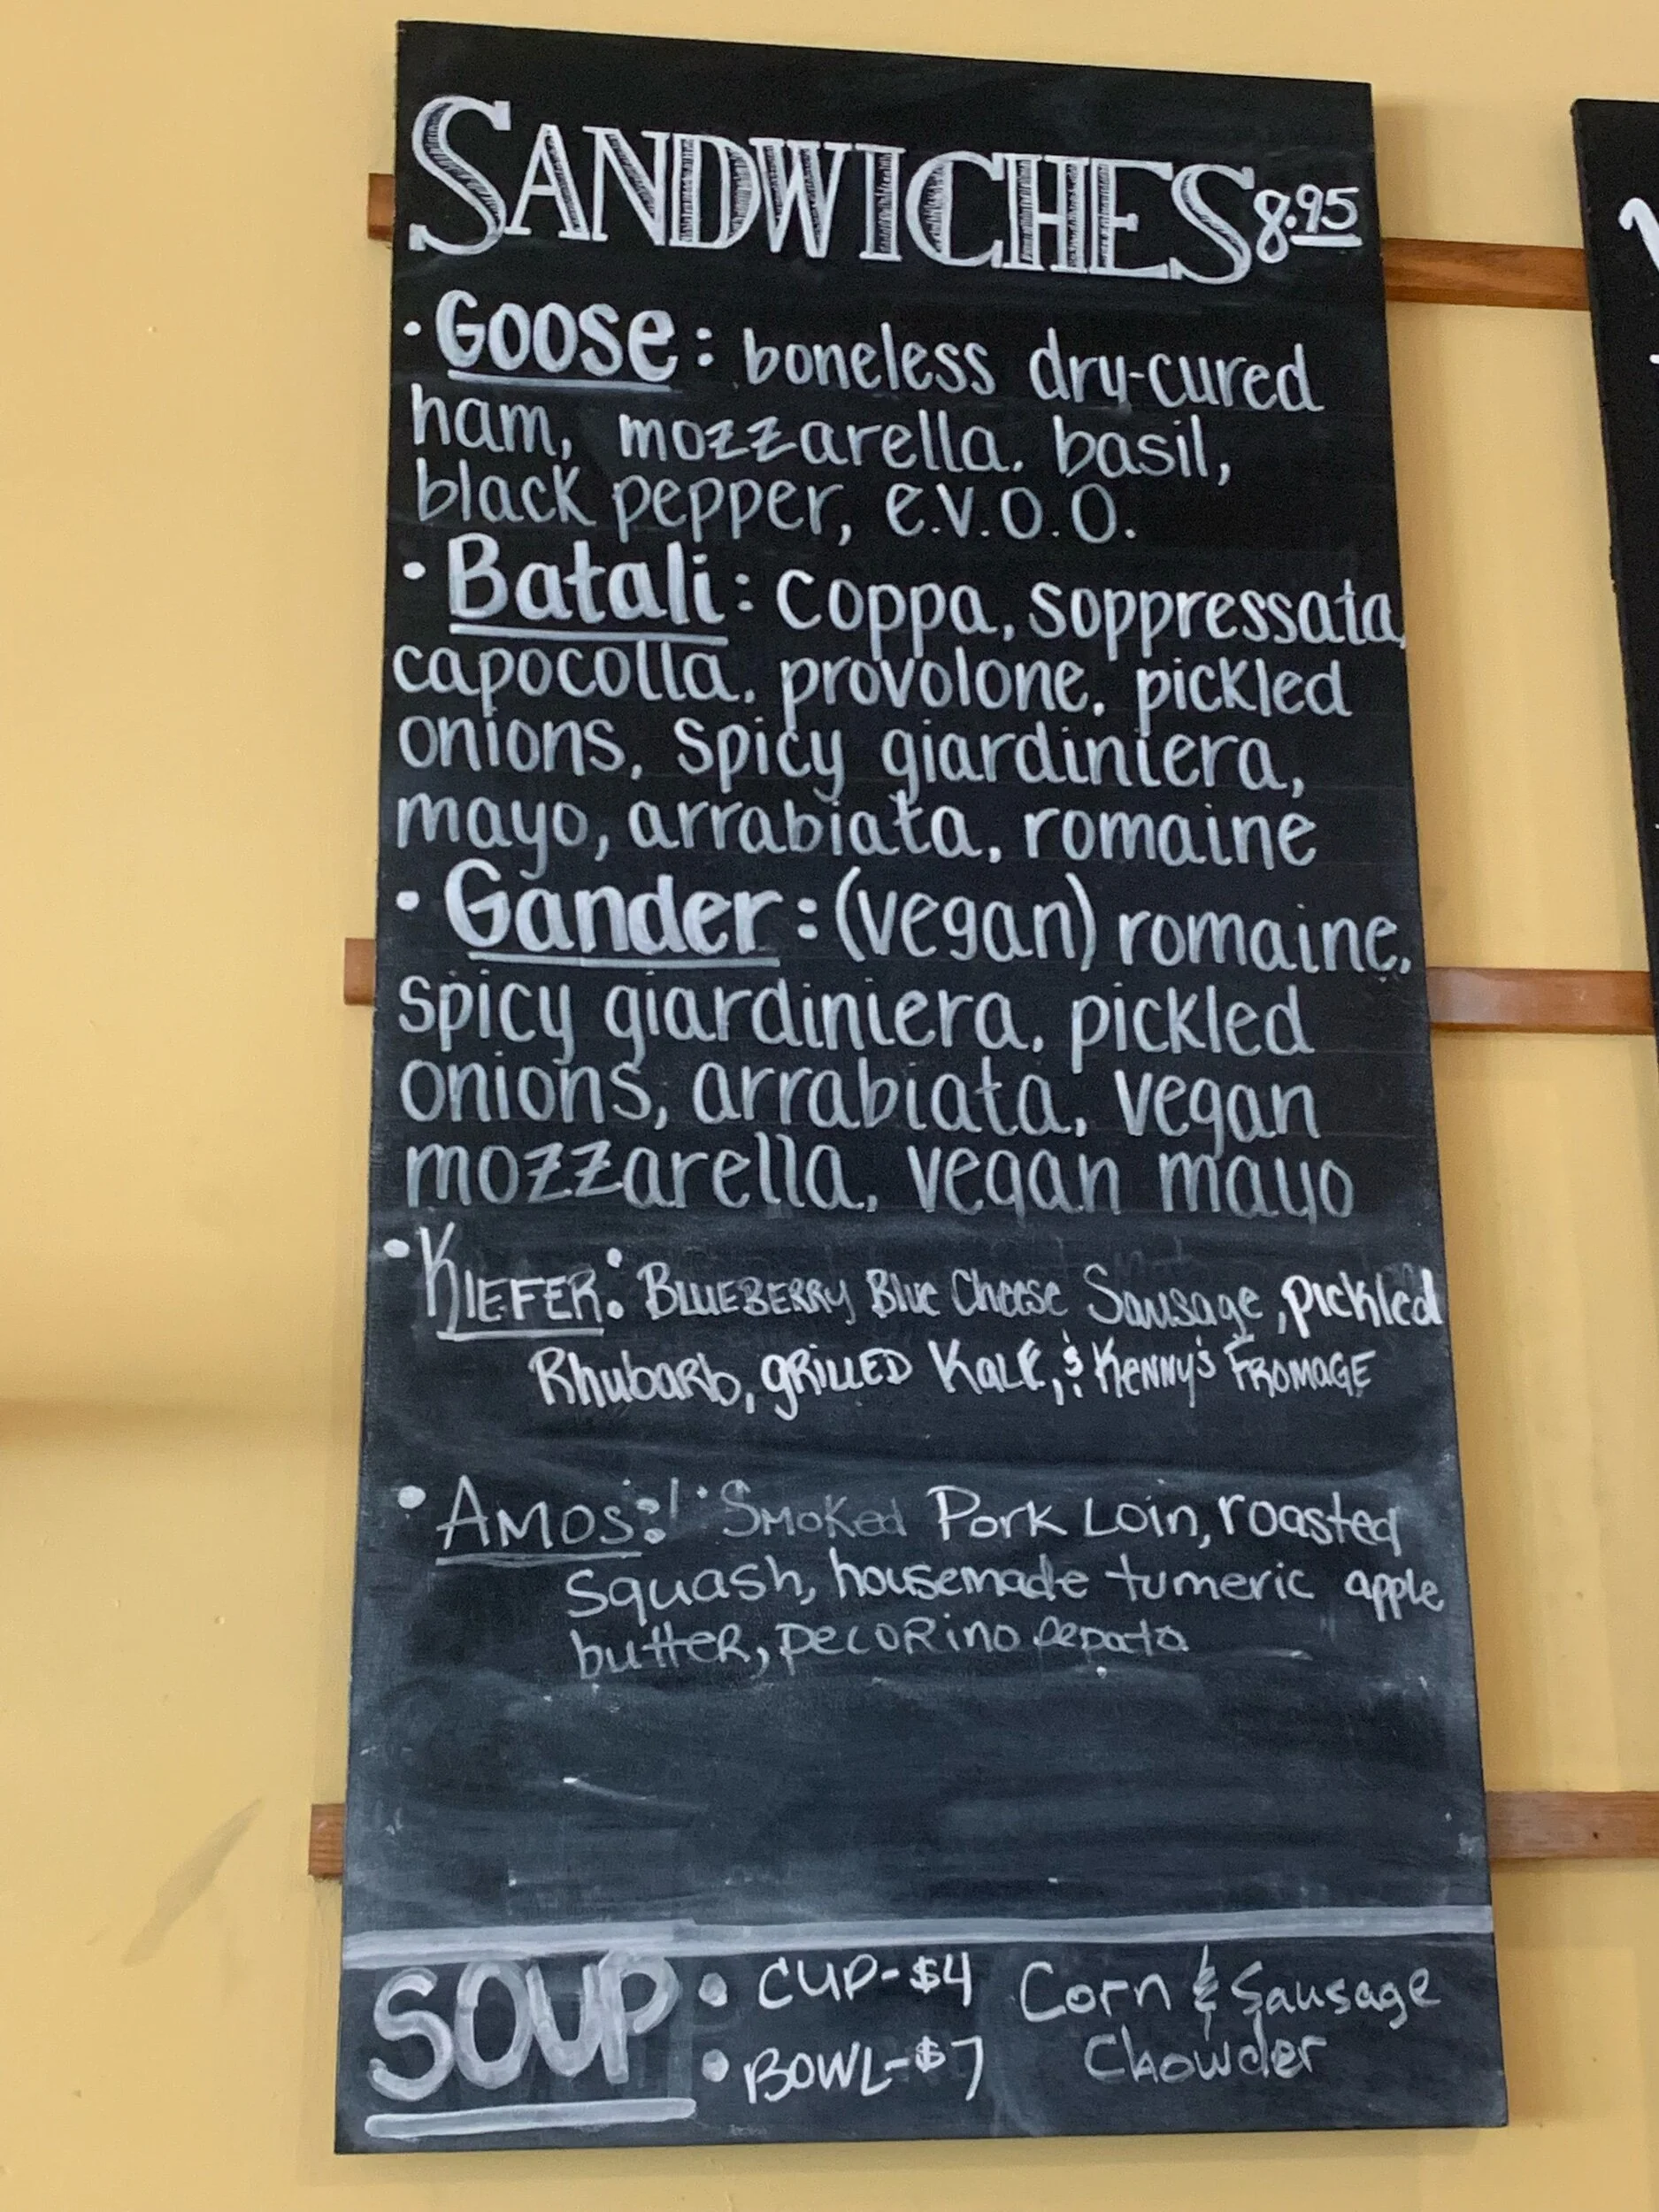 SANDWICHES 8.95
• Goose: boneless dry-cured
ham, mozzarella, basil,
black pepper, e.v.o.o.
• Batali: coppa, soppressata,
capocolla, provolone, pickled
onions, spicy giardiniera,
mayo, arrabiata, romaine
• Gander: (vegan) romaine,
spicy giardiniera, pickled
onions, arrabiata, vegan
mozzarella, vegan mayo
• KIEFER: BLUEBERRY Blue Cheese Sausage, pickled
Rhubarb, gRILLED Kale, & KENNY'S FROMAGE
• AMOS: Smoked Pork Loin, roasted
squash, housemade tumeric apple
butter, pecorino pepato
SOUP • CUP-$4 Corn & Sausage
• BOWL-$7 Chowder